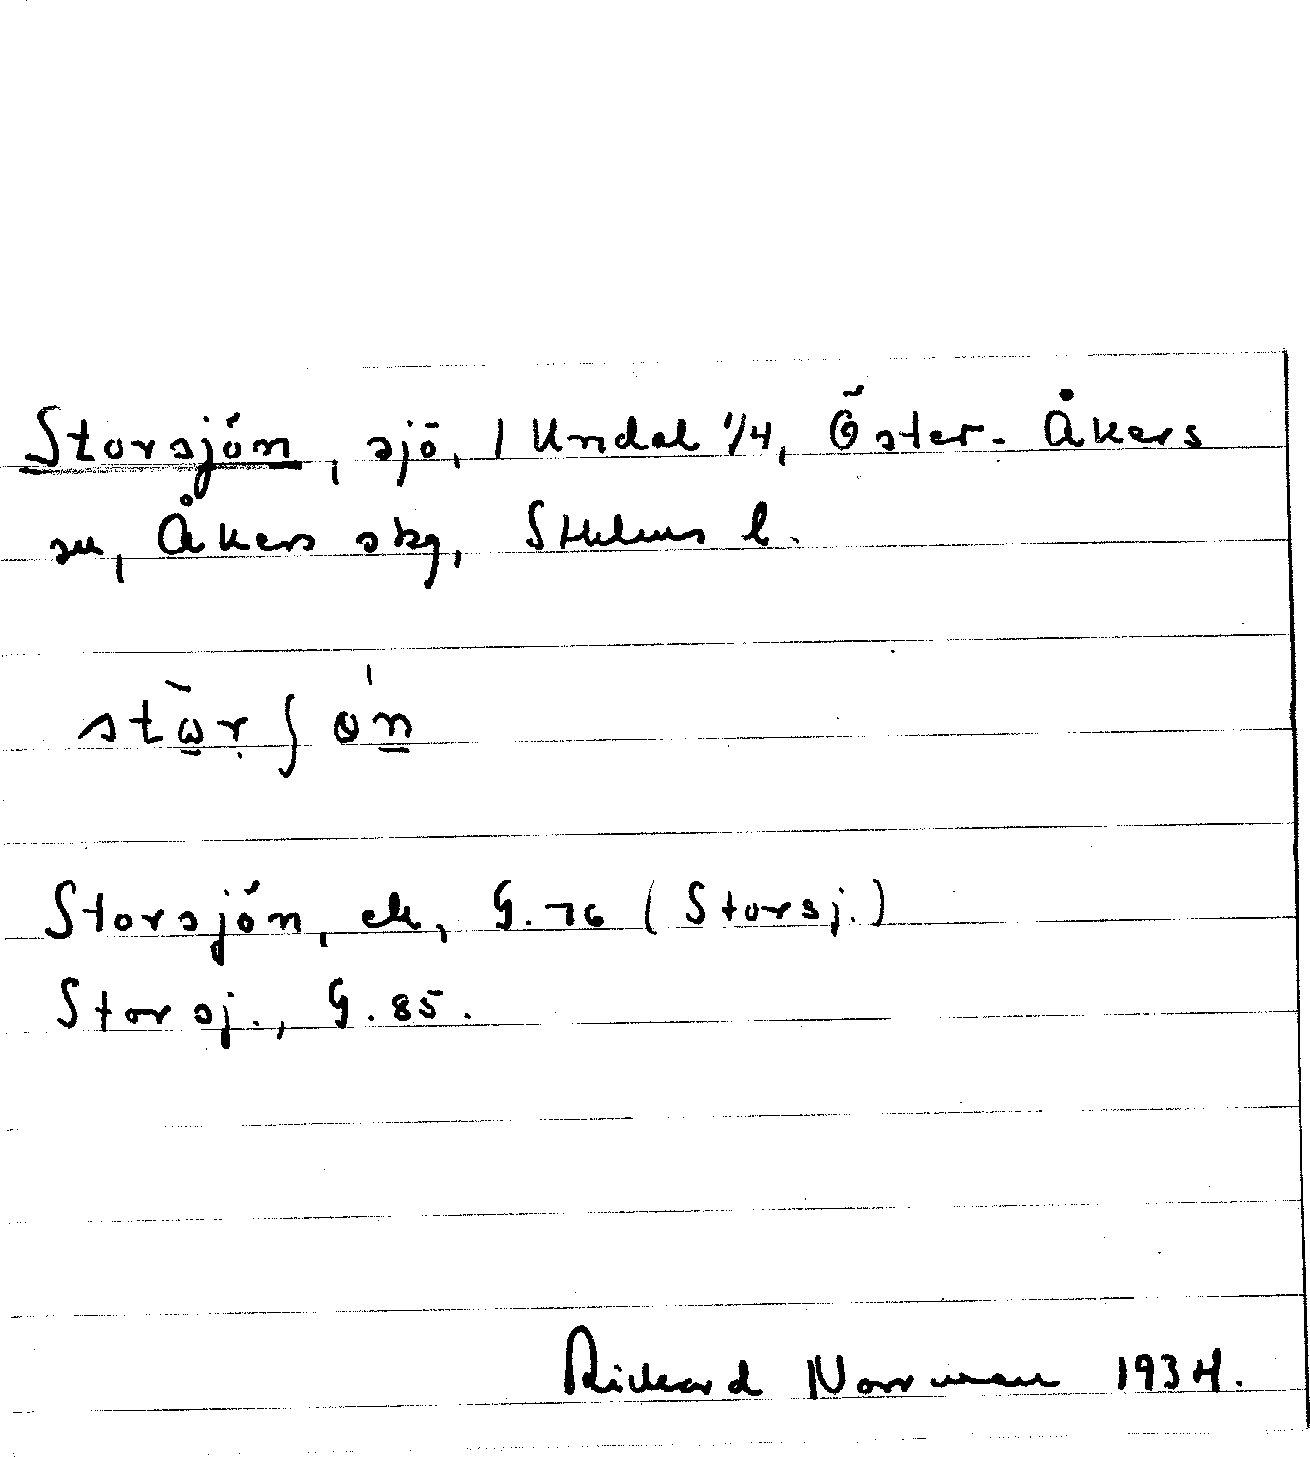 Storsjön, sjö, 1 Undal 1/4, Öster-Åkers
sn, Åkers skg, Sthlms l.
stὼ̲rʃөn̲
Storsjön, ek, G. 76 (Storsj.)
Storsj., G. 85.
Rickard Norrman 1934.